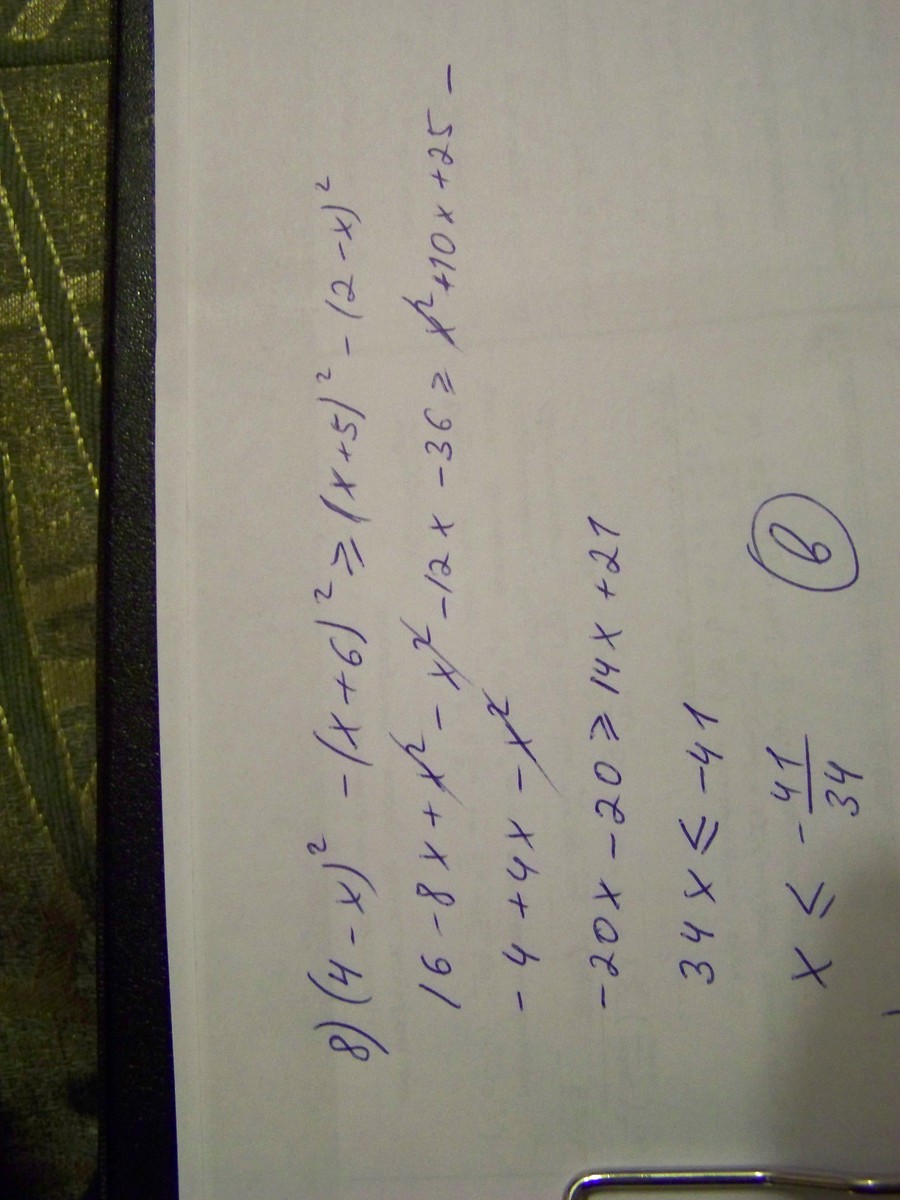 8) (4 - x)² - (x + 6)² ≥ (x + 5)² - (2 - x)²
16 - 8x + x² - x² - 12x - 36 ≥ x² + 10x + 25 -
- 4 + 4x - x²
-20x - 20 ≥ 14x + 21
34x ≤ -41
x ≤ - 41/34 в